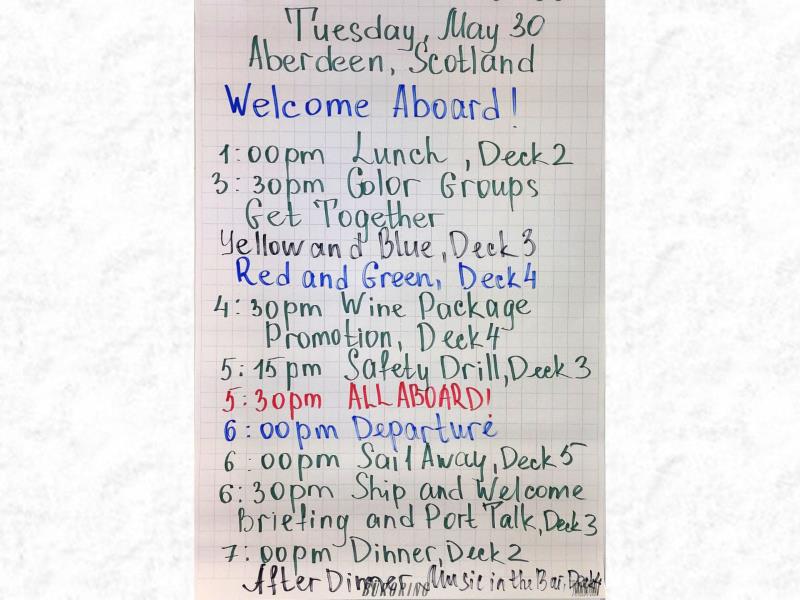 Tuesday, May 30
Aberdeen, Scotland
Welcome Aboard!
1:00pm Lunch, Deck 2
3:30pm Color Groups
Get Together
Yellow and Blue, Deck 3
Red and Green, Deck 4
4:30pm Wine Package
Promotion, Deck 4
5:15pm Safety Drill, Deck 3
5:30pm ALL ABOARD!
6:00pm Departure
6:00pm Sail Away, Deck 5
6:30pm Ship and Welcome
Briefing and Port Talk, Deck 3
7:00pm Dinner, Deck 2
After Dinner Music in the Bar, Deck 4